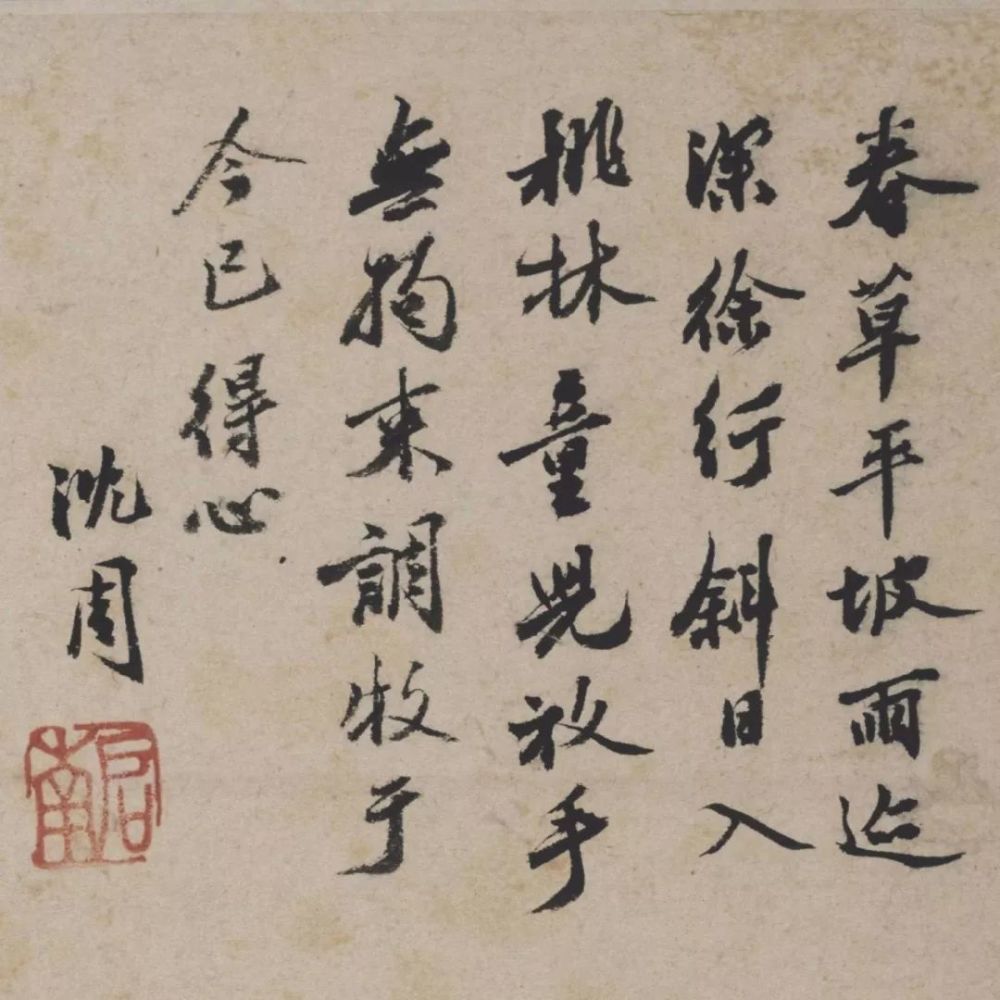 春草平坡雨迹
深徐行斜日入
桃林童兒放手
無拘束調牧于
今已得心
沈周
啓南